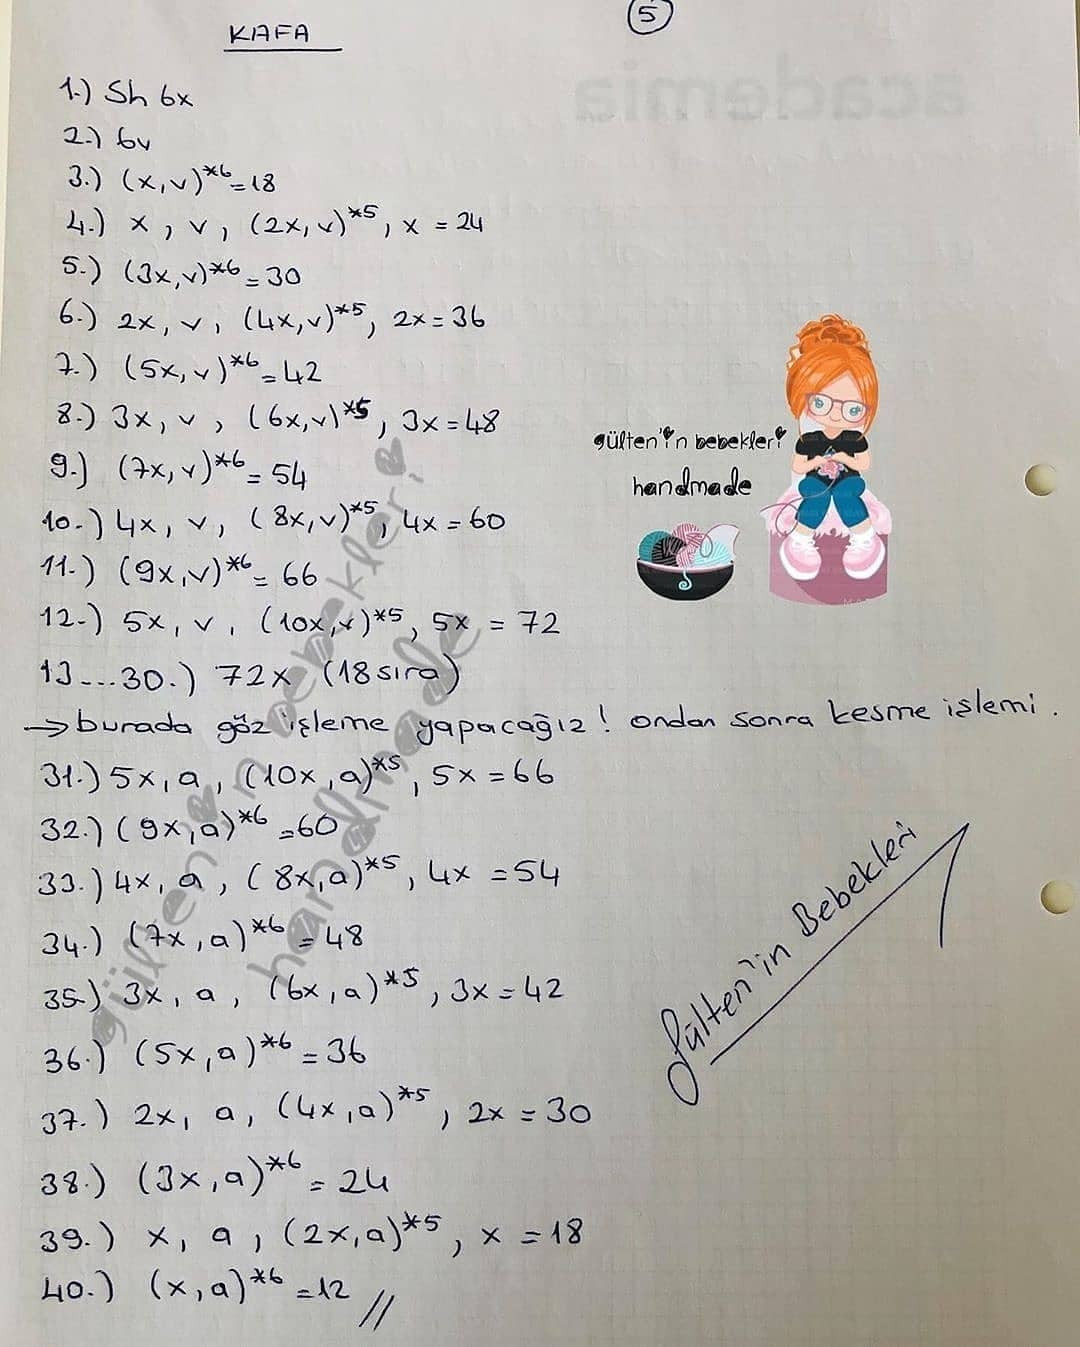 KAFA
5
academia
1.) Sh 6x
2.) 6v
3.) (x,v)*6=18
4.) x, v, (2x,v)*5, x = 24
5.) (3x,v)*6=30
6.) 2x, v, (4x,v)*5, 2x=36
7.) (5x,v)*6=42
8.) 3x, v, (6x,v)*5, 3x=48
9.) (7x,v)*6=54
10.) 4x, v, (8x,v)*5, 4x=60
11.) (9x,v)*6=66
12.) 5x, v, (10x,v)*5, 5x = 72
13...30.) 72x (18 sıra)
→ burada göz işleme yapacağız! ondan sonra kesme işlemi.
31.) 5x, a, (10x,a)*5, 5x=66
32.) (9x,a)*6=60
33.) 4x, a, (8x,a)*5, 4x =54
34.) (7x,a)*6=48
35.) 3x, a, (6x,a)*5, 3x=42
36.) (5x,a)*6=36
37.) 2x, a, (4x,a)*5, 2x = 30
38.) (3x,a)*6 = 24
39.) x, a, (2x,a)*5, x =18
40.) (x,a)*6=12 //
gülten'in bebekleri
handmade
gülten'in bebekleri
handmade
Gülten'in Bebekleri